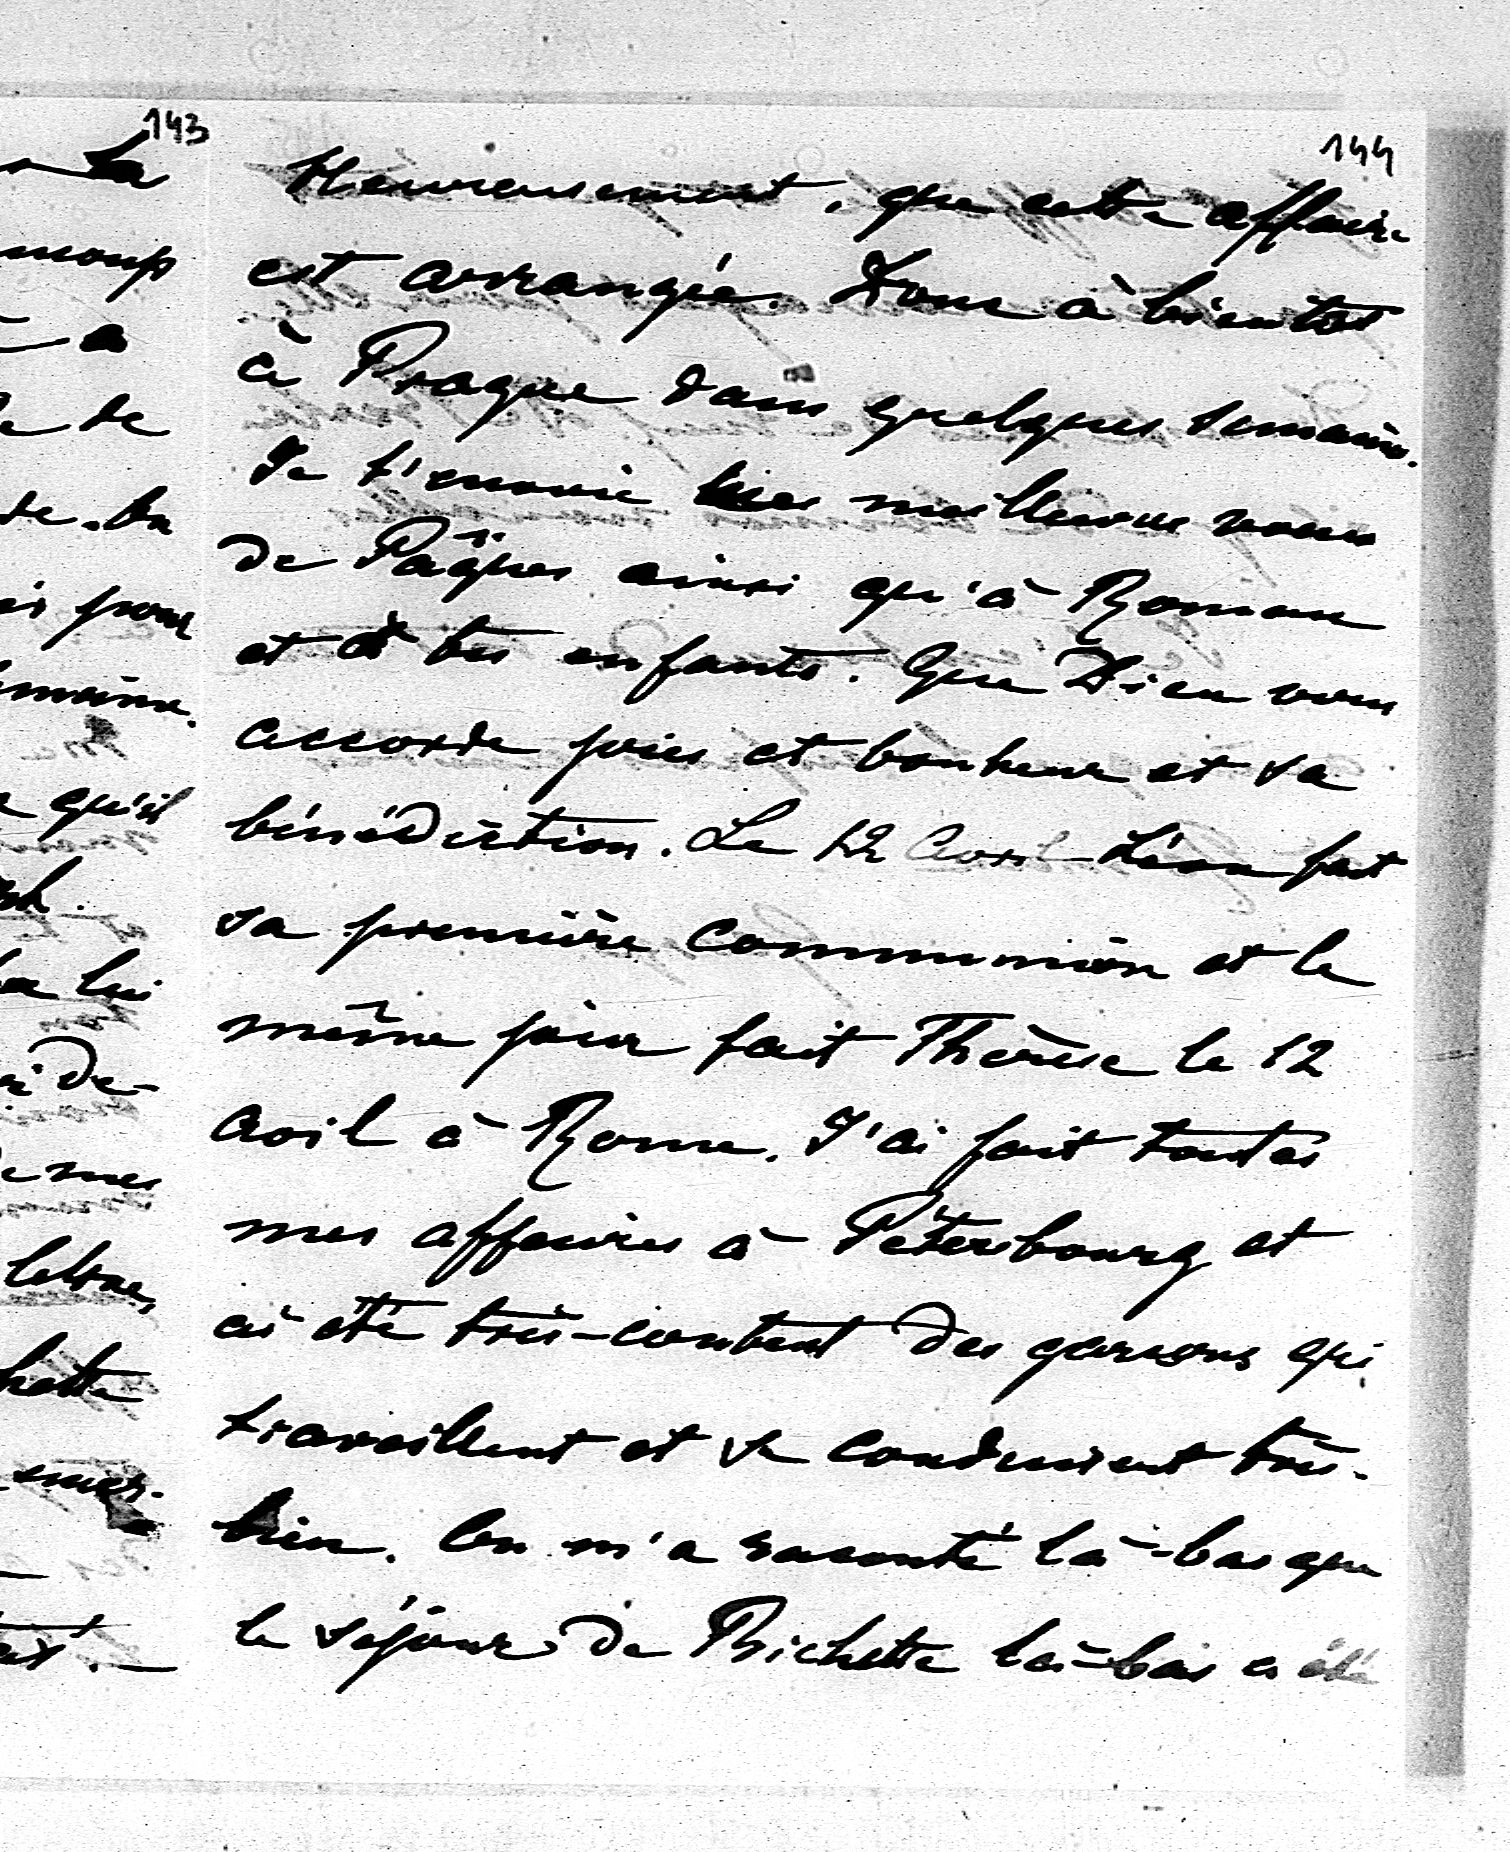 143
La
de
pour
qu'il
lui
de-
mes
lettre,
144
Heureusement, que cette affaire
est arrangée. Donc à bientôt
à Prague dans quelques semaines.
Je t'envoie mes meilleurs voeux
de Pâques ainsi qu'à Roman
et à tes enfants. Que Dieu vous
accorde joies et bonheur et sa
bénédiction. Le 12 Avril Léon fait
sa première communion et le
même jour fait Thérèse le 12
avril à Rome. J'ai fait toutes
mes affaires à Pétersbourg et
ai été très-content des garçons qui
travaillent et se conduisent très-
bien. On m'a raconté là-bas que
le séjour de Richette là-bas a été